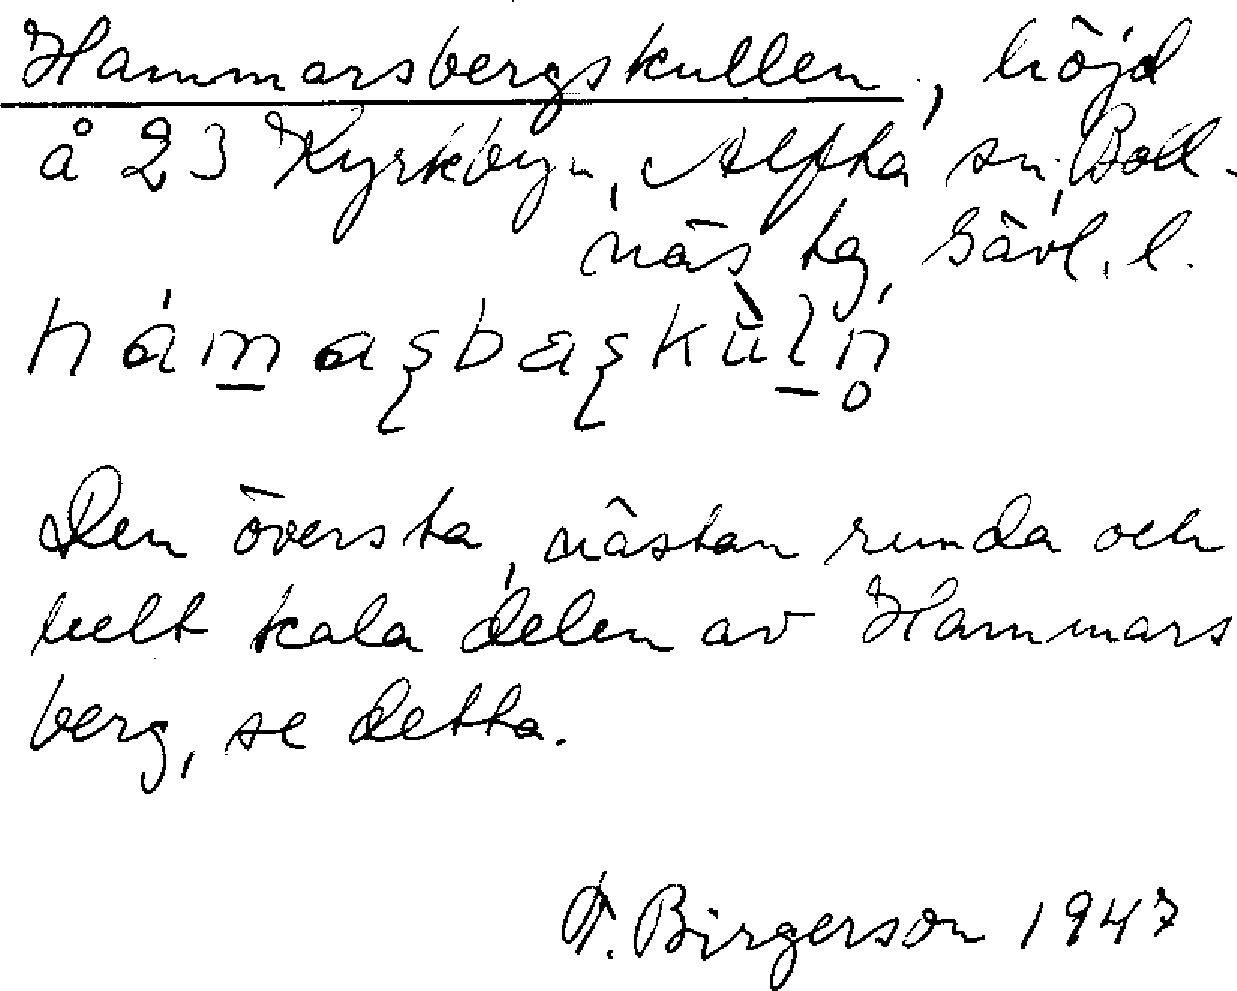 Hammarsbergskullen, höjd
å 23 Kyrkbyn, Alfta sn, Boll-
näs tg, Gävl. l.
Den översta, nästan runda och
helt kala delen av Hammars
berg, se detta.
Birgerson 1947